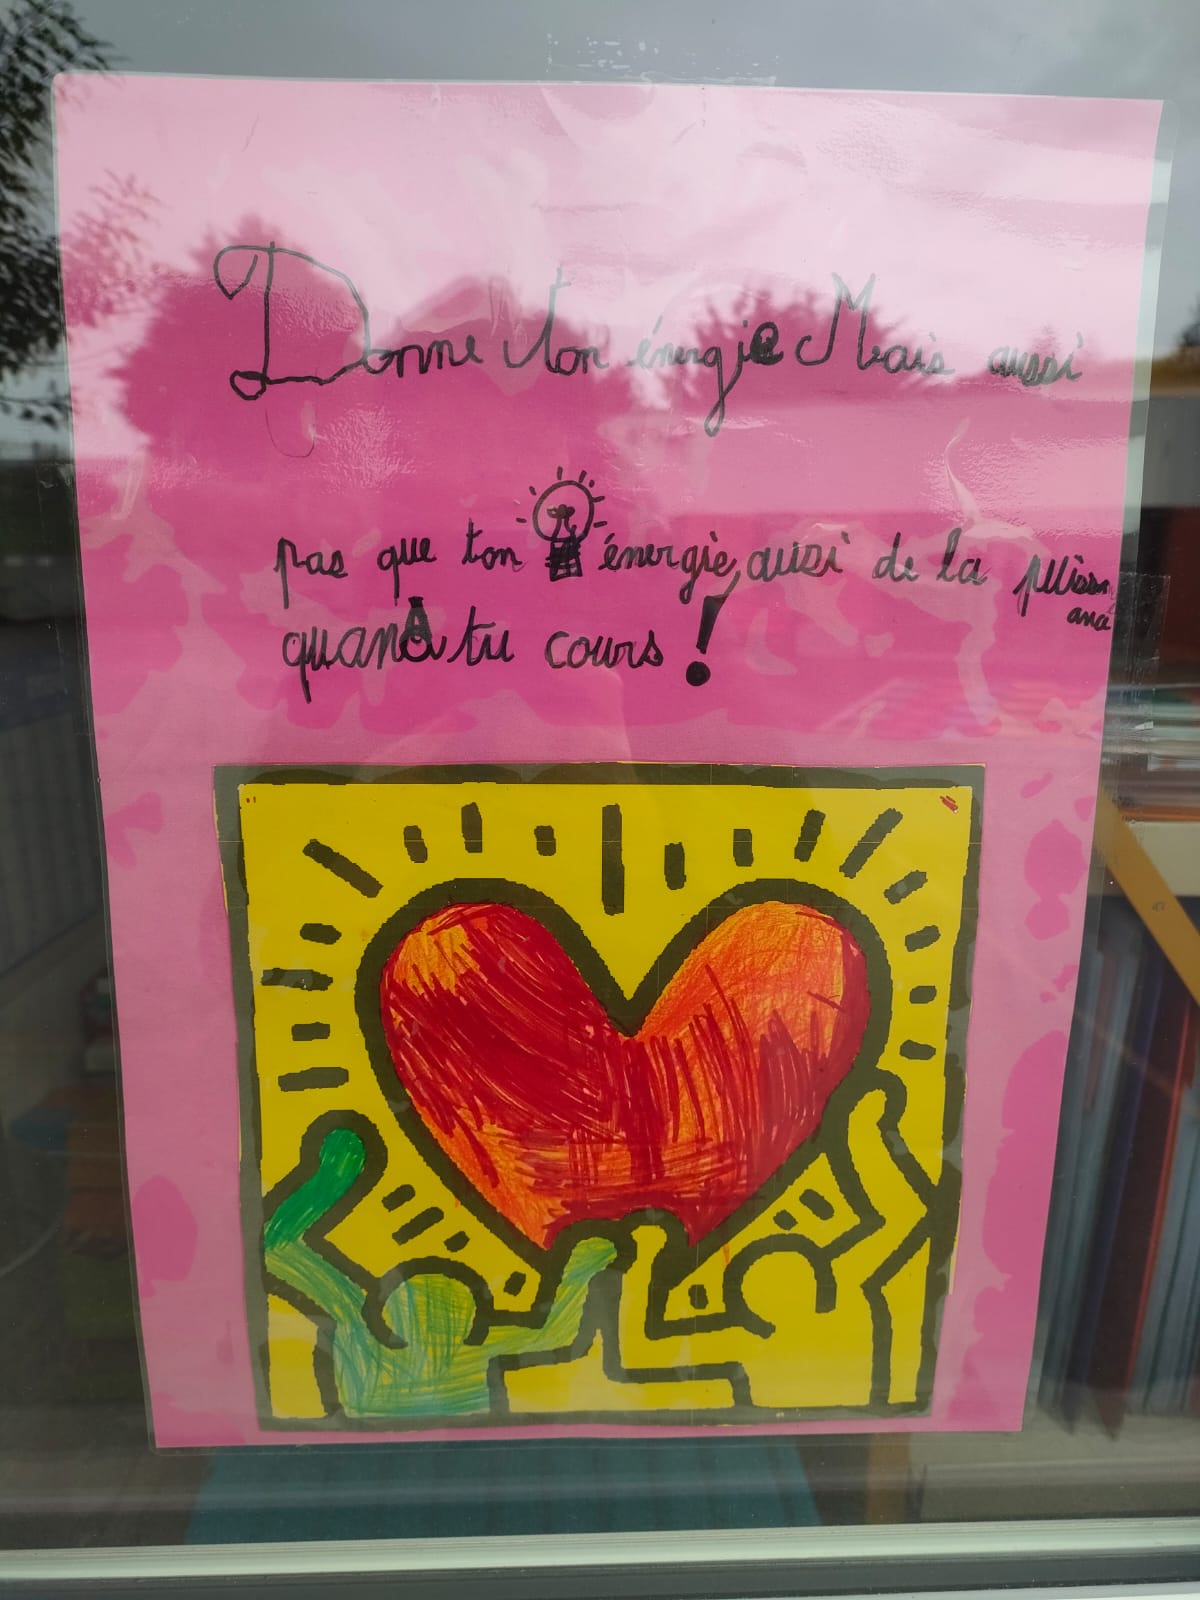 Donne ton énergie Mais aussi
pas que ton énergie, aussi de la puissn
ance
quand tu cours !